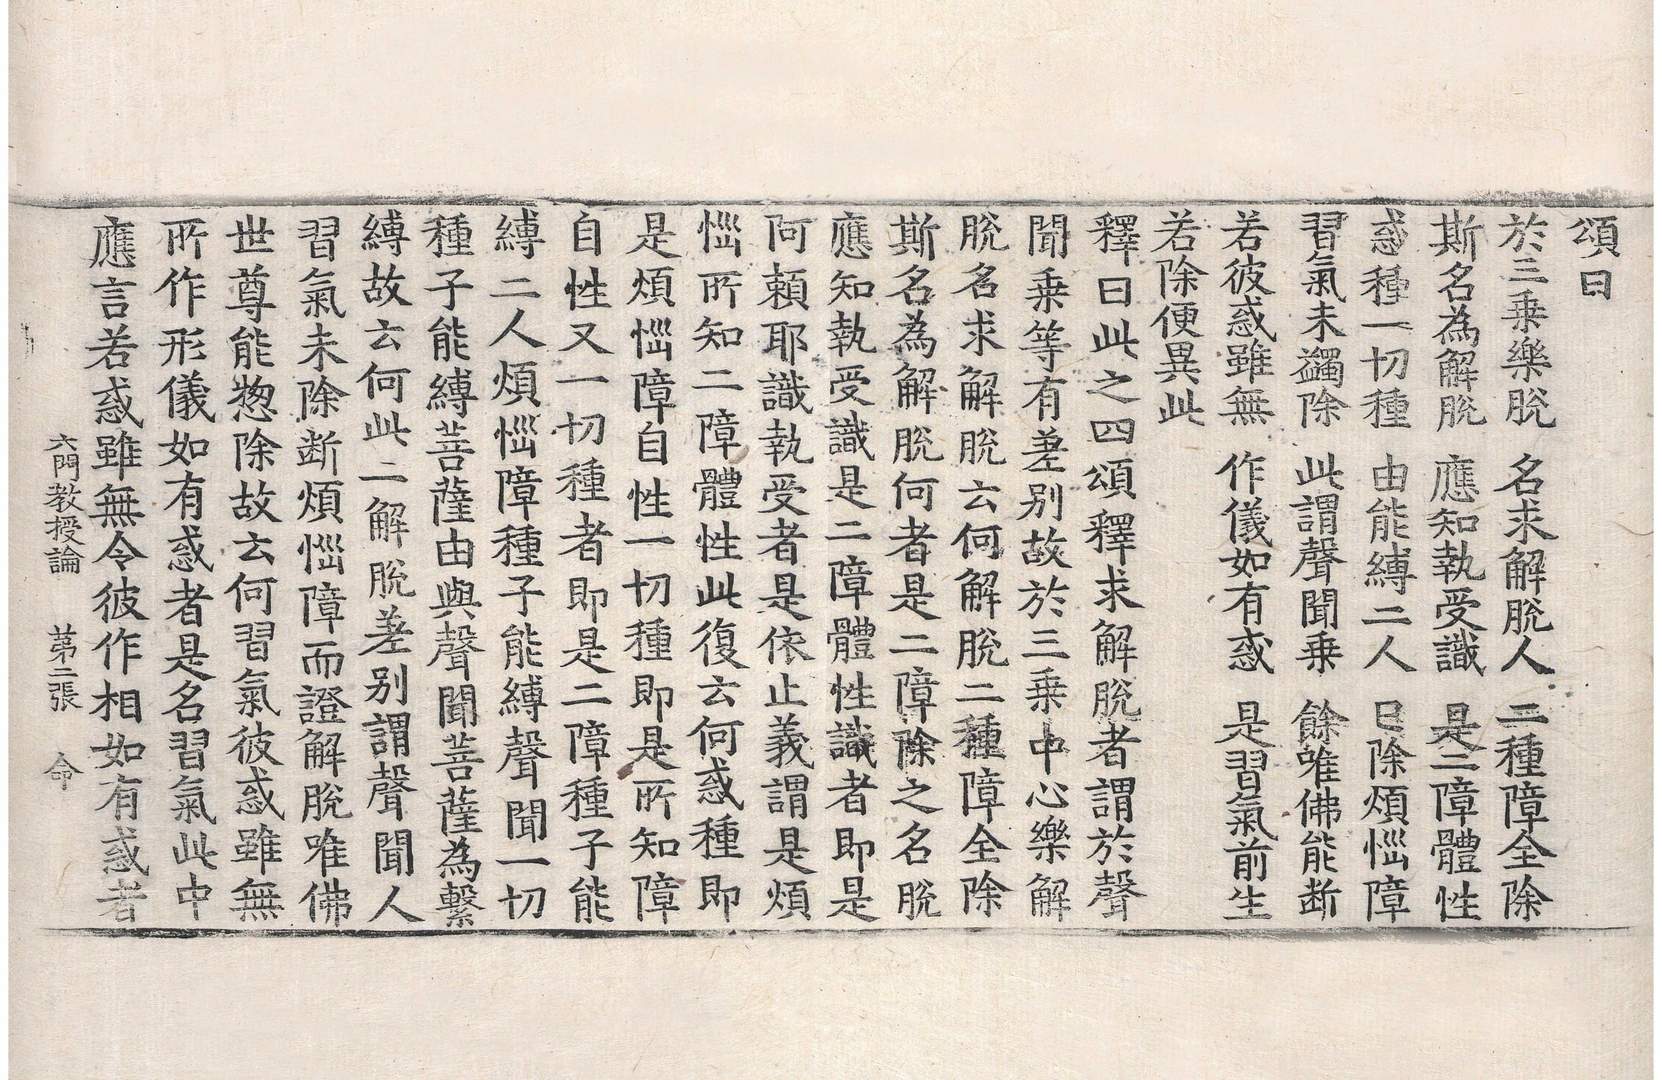 頌曰
於三乗樂脫　名求解脫人　二種障全除
斯名為解脫　應知執受識　是二障體性
惑種一切種　由能縛二人　已除煩惱障
習氣未蠲除　此謂聲聞乗　餘唯佛能断
若彼惑雖無　作儀如有惑　是習氣前生
若除便異此
釋曰此之四頌釋求解脫者謂於聲
聞乗等有差別故於三乗中心樂解
脫名求解脫云何解脫二種障全除
斯名為解脫何者是二障除之名脫
應知執受識是二障體性識者即是
阿頼耶識執受者是依止義謂是煩
惱所知二障體性此復云何惑種即
是煩惱障自性一切種即是所知障
自性又一切種者即是二障種子能
縛二人煩惱障種子能縛聲聞一切
種子能縛菩薩由與聲聞菩薩為繫
縛故云何此二解脫差別謂聲聞人
習氣未除断煩惱障而證解脫唯佛
世尊能惣除故云何習氣彼惑雖無
所作形儀如有惑者是名習氣此中
應言若惑雖無令彼作相如有惑者
六門教授論　苐二張　命